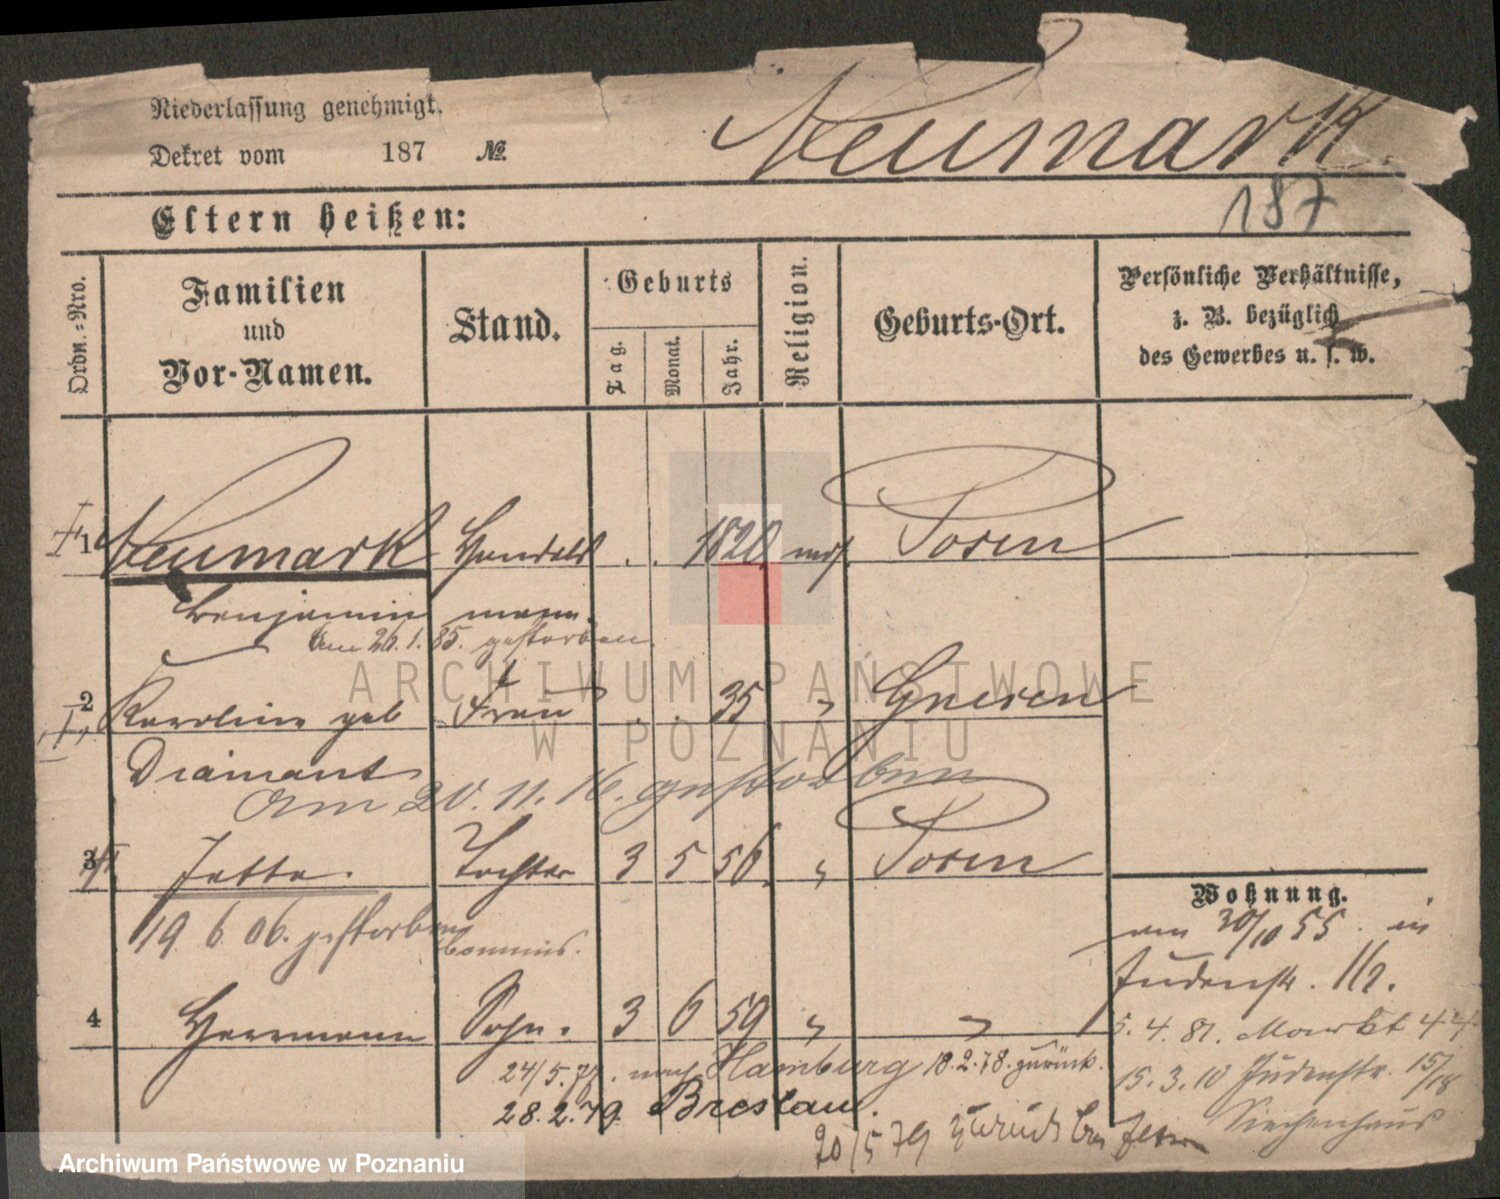 Niederlassung genehmigt.
Dekret vom 187 №.
Neumark
187
Eltern heißen:
Ordn.-Nro.
Familien und Vor-Namen.
Stand.
Geburts
Tag.
Monat.
Jahr.
Religion.
Geburts-Ort.
Persönliche Verhältnisse,
z. B. bezüglich
des Gewerbes u. s. w.
1 Neumark Handels . . 1820 mos. Posen
Benjamin mann.
am 26.1.85. gestorben
2 Karoline geb Frau . . 35 " Gnesen
Diamant
am 20.11.16. gestorben
3 Jette. Tochter 3 5 56. " Posen
19.6.06. gestorben
Commis.
4 Herrmann Sohn. 3 6 59 " "
24/5.77. nach Hamburg 18.2.78. zurück.
28.2.79. Breslau.
20/5 79 zurück
Wohnung.
am 30/10 55. in
Judenstr. 1/2.
5.4.81. Markt 44
15.3.10 Judenstr. 15/18
Siechenhaus
ARCHIWUM PAŃSTWOWE
W POZNANIU
Archiwum Państwowe w Poznaniu